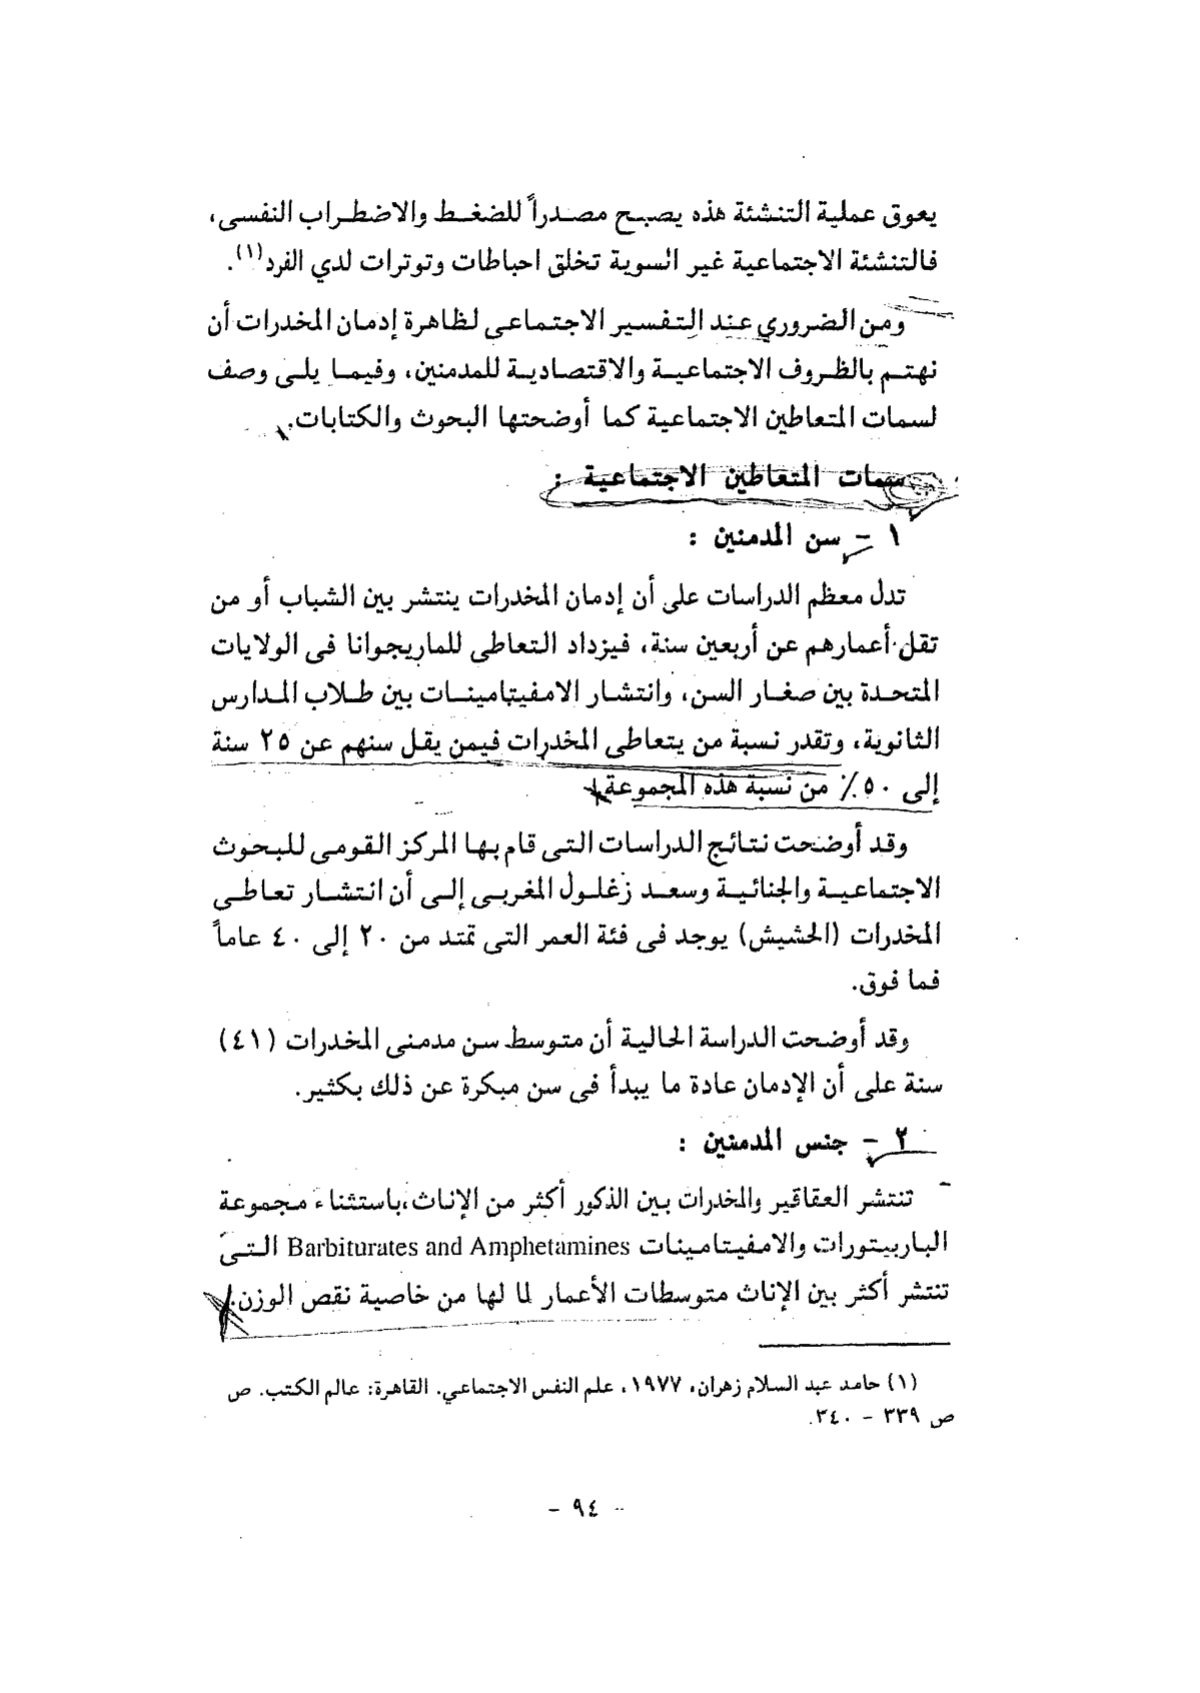 يعوق عملية التنشئة هذه يصبح مصدراً للضغط والاضطراب النفسى،
فالتنشئة الاجتماعية غير السوية تخلق احباطات وتوترات لدي الفرد(١).
ومن الضروري عند التفسير الاجتماعى لظاهرة إدمان المخدرات أن
نهتم بالظروف الاجتماعية والاقتصادية للمدمنين، وفيما يلى وصف
لسمات المتعاطين الاجتماعية كما أوضحتها البحوث والكتابات.
سمات المتعاطين الاجتماعية :
١ - سن المدمنين :
تدل معظم الدراسات على أن إدمان المخدرات ينتشر بين الشباب أو من
تقل أعمارهم عن أربعين سنة، فيزداد التعاطى للماريجوانا فى الولايات
المتحدة بين صغار السن، وانتشار الامفيتامينات بين طلاب المدارس
الثانوية، وتقدر نسبة من يتعاطى المخدرات فيمن يقل سنهم عن ٢٥ سنة
إلى ٥٠٪ من نسبة هذه المجموعة.
وقد أوضحت نتائج الدراسات التى قام بها المركز القومى للبحوث
الاجتماعية والجنائية وسعد زغلول المغربى إلى أن انتشار تعاطى
المخدرات (الحشيش) يوجد فى فئة العمر التى تمتد من ٢٠ إلى ٤٠ عاماً
فما فوق.
وقد أوضحت الدراسة الحالية أن متوسط سن مدمنى المخدرات (٤١)
سنة على أن الإدمان عادة ما يبدأ فى سن مبكرة عن ذلك بكثير.
٢ - جنس المدمنين :
تنتشر العقاقير والمخدرات بين الذكور أكثر من الإناث، باستثناء مجموعة
الباربيتورات والامفيتامينات Barbiturates and Amphetamines التى
تنتشر أكثر بين الإناث متوسطات الأعمار لما لها من خاصية نقص الوزن.
(١) حامد عبد السلام زهران، ١٩٧٧، علم النفس الاجتماعي. القاهرة: عالم الكتب. ص
ص ٣٣٩ - ٣٤٠.
- ٩٤ -